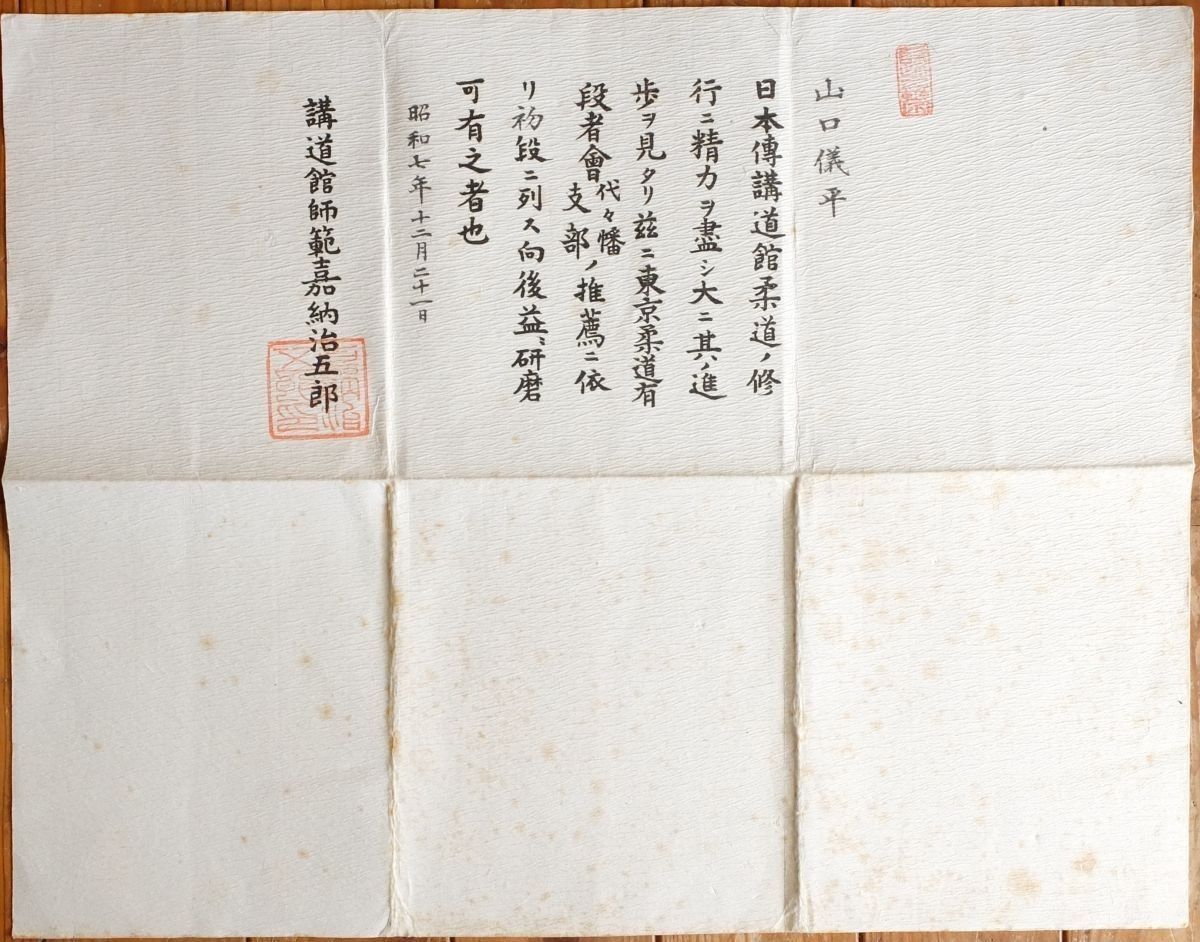 山口儀平
日本傳講道館柔道ノ修
行ニ精力ヲ盡シ大ニ其ノ進
歩ヲ見タリ茲ニ東京柔道有
段者會代々幡支部ノ推薦ニ依
リ初段ニ列ス向後益〻研磨
可有之者也
昭和七年十二月二十一日
講道館師範嘉納治五郎